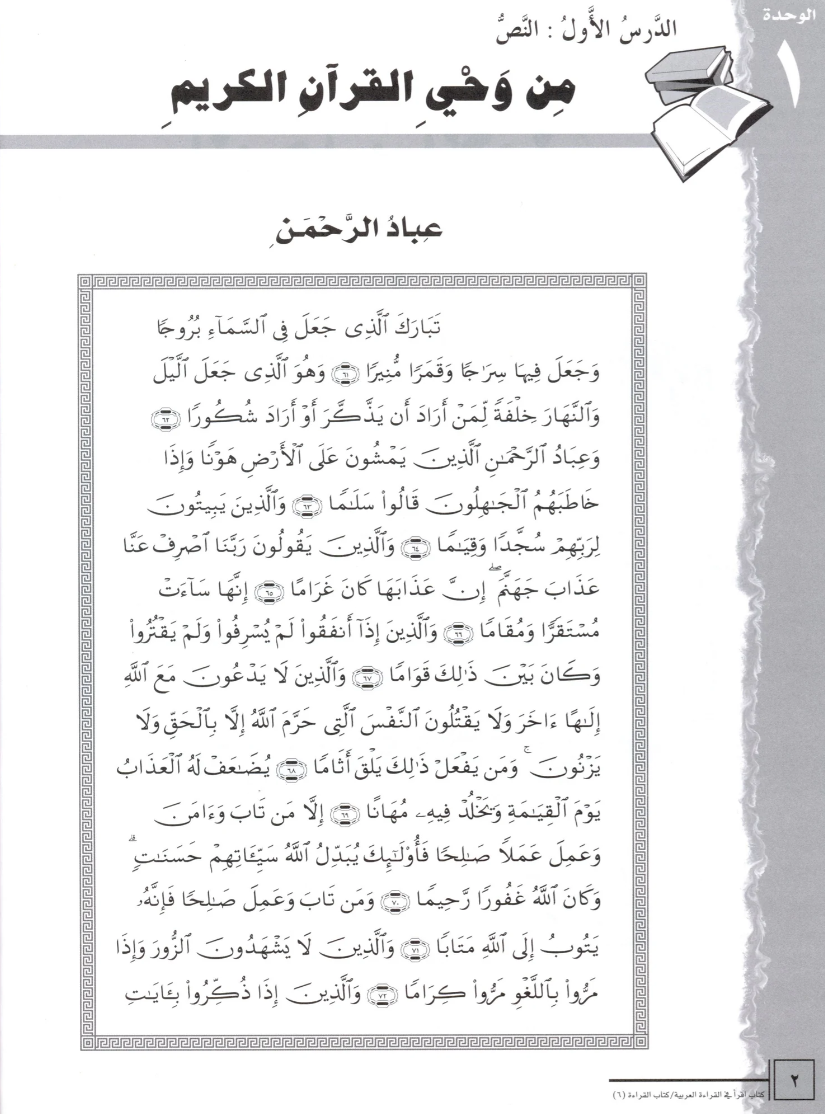 الوحدة
١
الدَّرسُ الأَّولُ : النَّصُّ
مِن وَحْيِ القرآنِ الكريمِ
عِبادُ الرَّحْمَنِ
تَبَارَكَ ٱلَّذِى جَعَلَ فِى ٱلسَّمَآءِ بُرُوجًا
وَجَعَلَ فِيهَا سِرَٰجًا وَقَمَرًا مُّنِيرًا ٦١ وَهُوَ ٱلَّذِى جَعَلَ ٱلَّيْلَ
وَٱلنَّهَارَ خِلْفَةً لِّمَنْ أَرَادَ أَن يَذَّكَّرَ أَوْ أَرَادَ شُكُورًا ٦٢
وَعِبَادُ ٱلرَّحْمَٰنِ ٱلَّذِينَ يَمْشُونَ عَلَى ٱلْأَرْضِ هَوْنًا وَإِذَا
خَاطَبَهُمُ ٱلْجَٰهِلُونَ قَالُوا۟ سَلَٰمًا ٦٣ وَٱلَّذِينَ يَبِيتُونَ
لِرَبِّهِمْ سُجَّدًا وَقِيَٰمًا ٦٤ وَٱلَّذِينَ يَقُولُونَ رَبَّنَا ٱصْرِفْ عَنَّا
عَذَابَ جَهَنَّمَ ۖ إِنَّ عَذَابَهَا كَانَ غَرَامًا ٦٥ إِنَّهَا سَآءَتْ
مُسْتَقَرًّا وَمُقَامًا ٦٦ وَٱلَّذِينَ إِذَآ أَنفَقُوا۟ لَمْ يُسْرِفُوا۟ وَلَمْ يَقْتُرُوا۟
وَكَانَ بَيْنَ ذَٰلِكَ قَوَامًا ٦٧ وَٱلَّذِينَ لَا يَدْعُونَ مَعَ ٱللَّهِ
إِلَٰهًا ءَاخَرَ وَلَا يَقْتُلُونَ ٱلنَّفْسَ ٱلَّتِى حَرَّمَ ٱللَّهُ إِلَّا بِٱلْحَقِّ وَلَا
يَزْنُونَ ۚ وَمَن يَفْعَلْ ذَٰلِكَ يَلْقَ أَثَامًا ٦٨ يُضَٰعَفْ لَهُ ٱلْعَذَابُ
يَوْمَ ٱلْقِيَٰمَةِ وَيَخْلُدْ فِيهِۦ مُهَانًا ٦٩ إِلَّا مَن تَابَ وَءَامَنَ
وَعَمِلَ عَمَلًا صَٰلِحًا فَأُو۟لَٰٓئِكَ يُبَدِّلُ ٱللَّهُ سَيِّـَٔاتِهِمْ حَسَنَٰتٍ ۗ
وَكَانَ ٱللَّهُ غَفُورًا رَّحِيمًا ٧٠ وَمَن تَابَ وَعَمِلَ صَٰلِحًا فَإِنَّهُۥ
يَتُوبُ إِلَى ٱللَّهِ مَتَابًا ٧١ وَٱلَّذِينَ لَا يَشْهَدُونَ ٱلزُّورَ وَإِذَا
مَرُّوا۟ بِٱللَّغْوِ مَرُّوا۟ كِرَامًا ٧٢ وَٱلَّذِينَ إِذَا ذُكِّرُوا۟ بِـَٔايَٰتِ
٢
كتاب اقرأ في القراءة العربية/كتاب القراءة (٦)